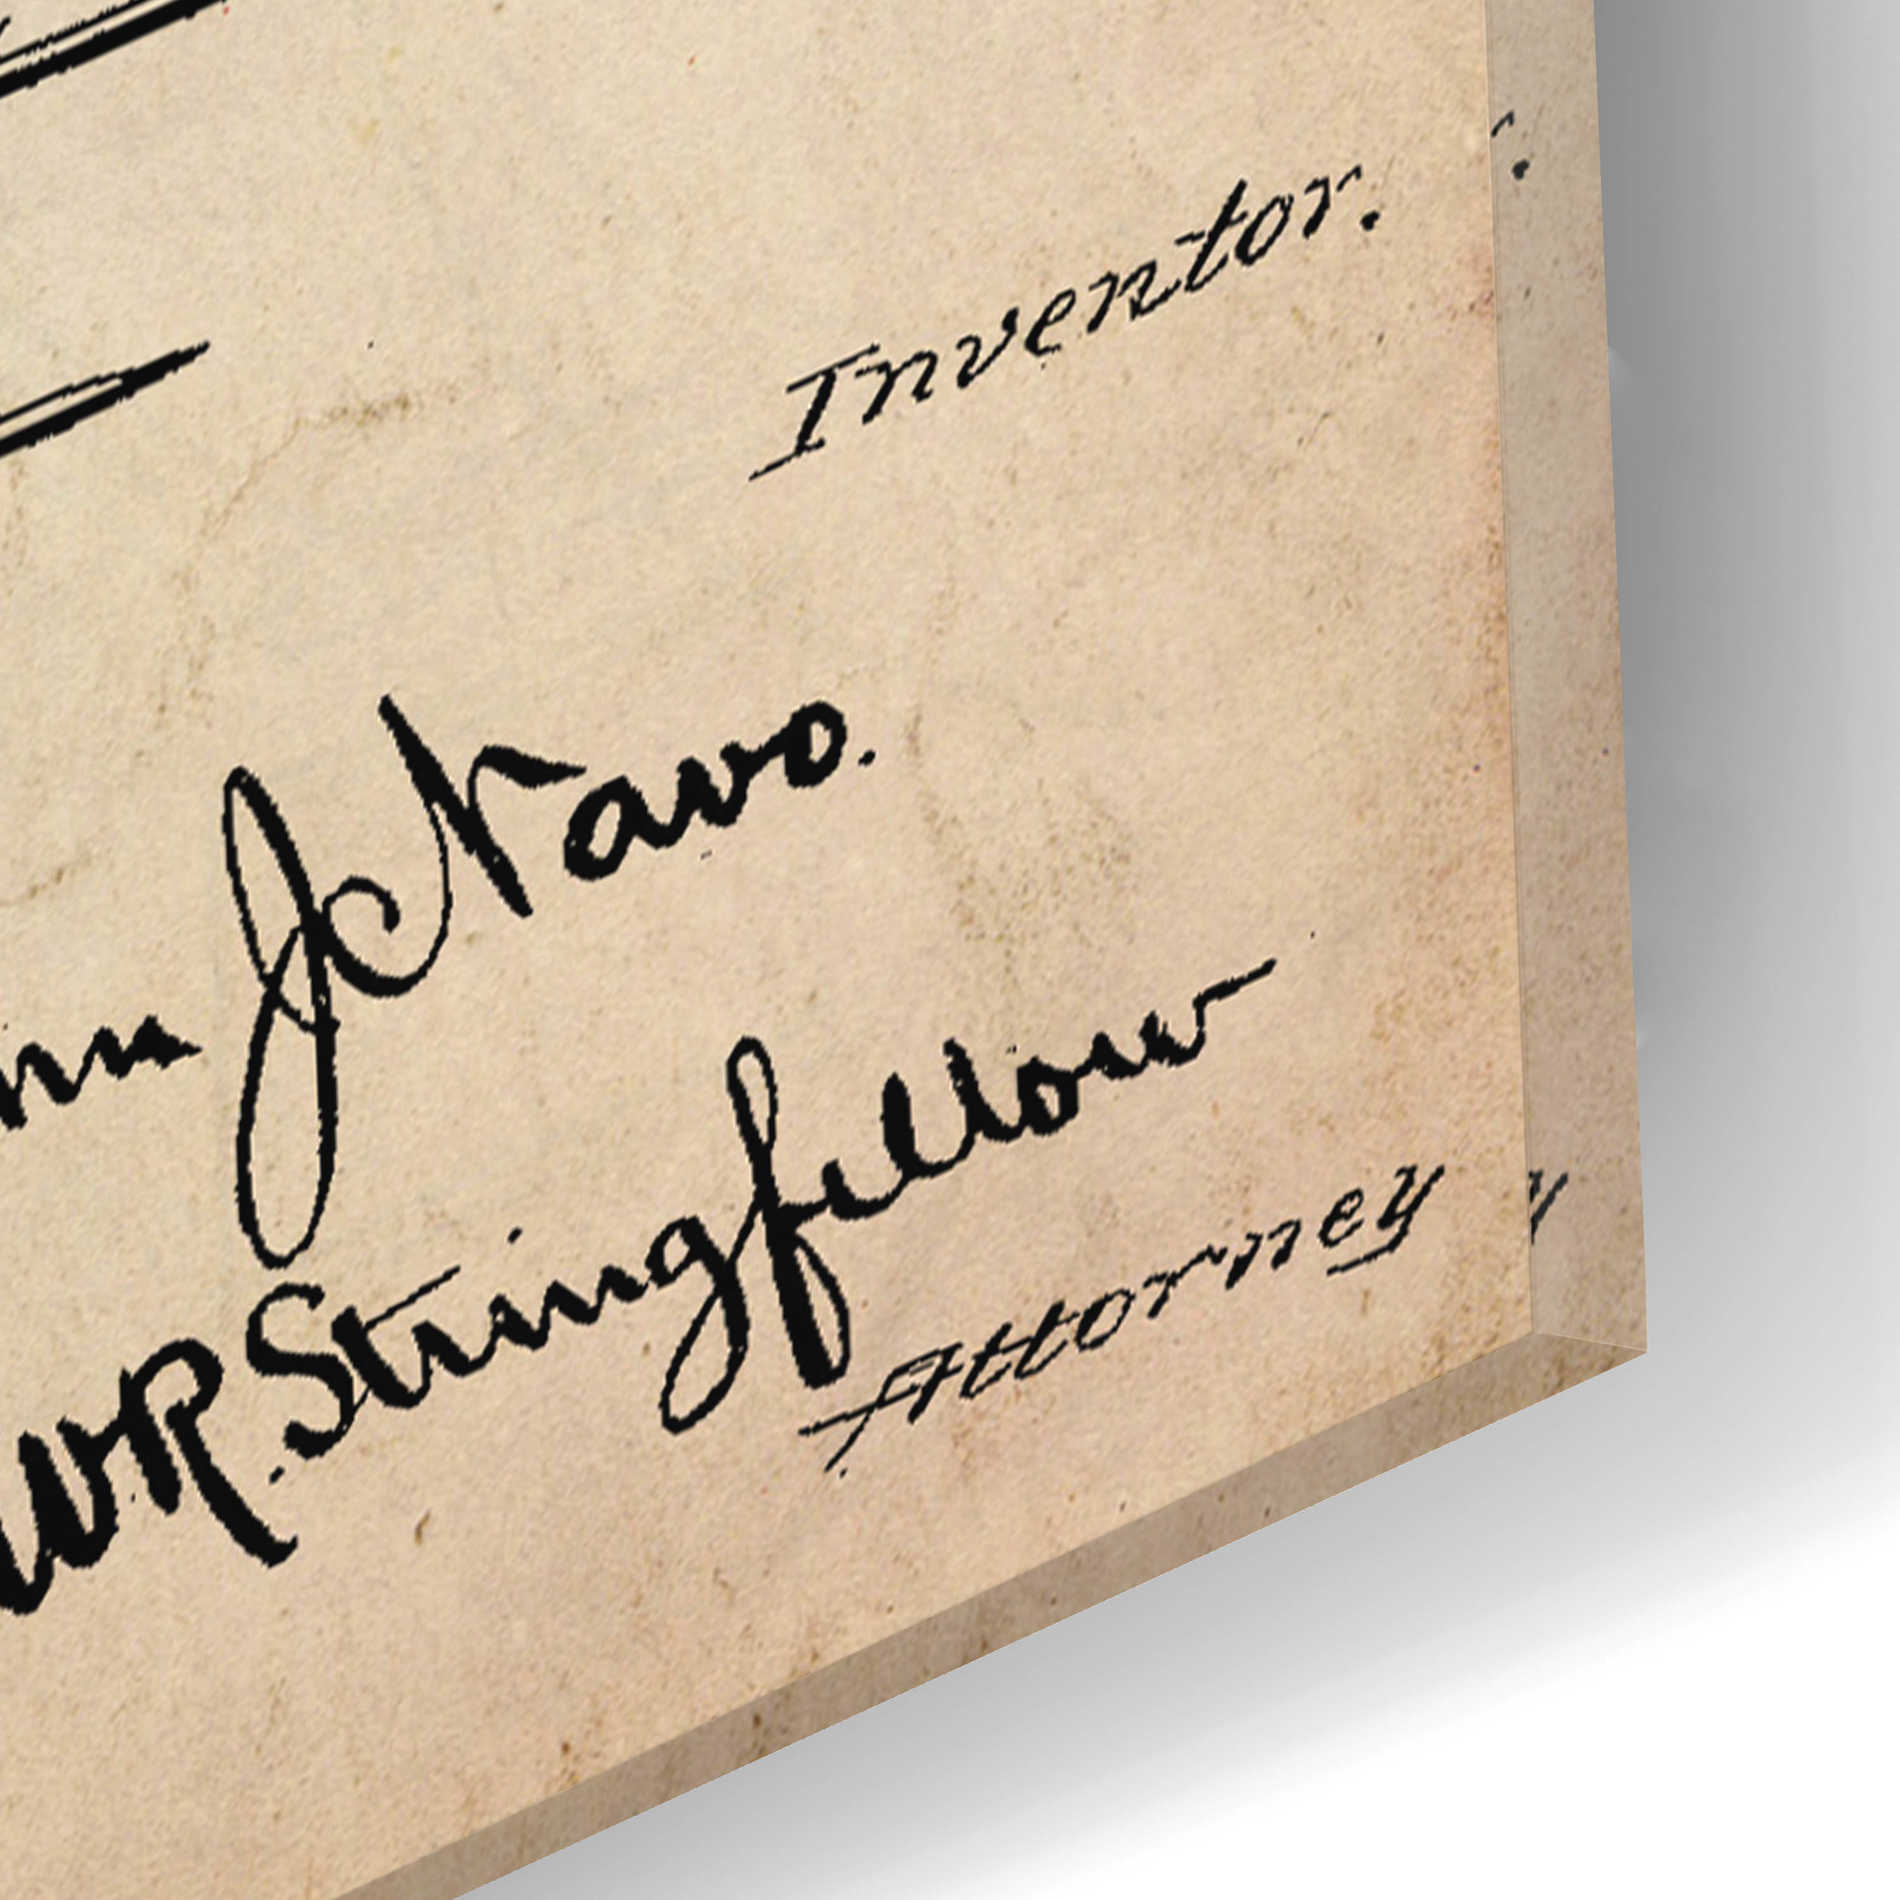 Inventor.
J Navo.
W R. Stringfellow
Attorney